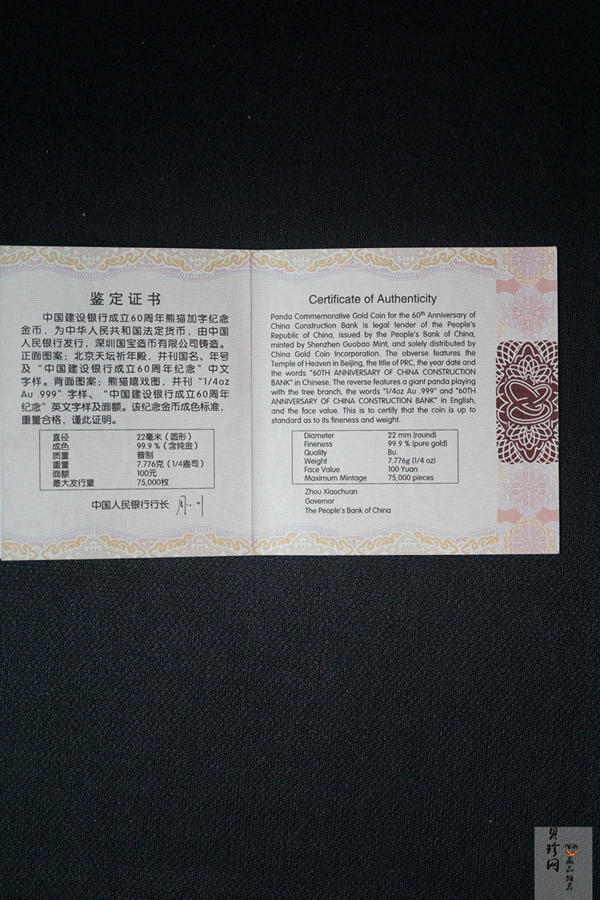 鉴定证书
中国建设银行成立60周年熊猫加字纪念
金币，为中华人民共和国法定货币，由中国
人民银行发行，深圳国宝造币有限公司铸造。
正面图案：北京天坛祈年殿，并刊国名、年号
及“中国建设银行成立60周年纪念”中文
字样。背面图案：熊猫嬉戏图，并刊“1/4oz
Au .999”字样、“中国建设银行成立60周年
纪念”英文字样及面额。该纪念金币成色标准，
重量合格，谨此证明。
直径 22毫米（圆形）
成色 99.9％（含纯金）
质量 普制
重量 7.776克（1/4盎司）
面额 100元
最大发行量 75,000枚
中国人民银行行长
Certificate of Authenticity
Panda Commemorative Gold Coin for the 60th Anniversary of
China Construction Bank is legal tender of the People's
Republic of China, issued by the People's Bank of China,
minted by Shenzhen Guobao Mint, and solely distributed by
China Gold Coin Incorporation. The obverse features the
Temple of Heaven in Beijing, the title of PRC, the year date and
the words "60TH ANNIVERSARY OF CHINA CONSTRUCTION
BANK" in Chinese. The reverse features a giant panda playing
with the tree branch, the words "1/4oz Au .999" and "60TH
ANNIVERSARY OF CHINA CONSTRUCTION BANK" in English,
and the face value. This is to certify that the coin is up to
standard as to its fineness and weight.
Diameter 22 mm (round)
Fineness 99.9 % (pure gold)
Quality Bu.
Weight 7.776g (1/4 oz)
Face Value 100 Yuan
Maximum Mintage 75,000 pieces
Zhou Xiaochuan
Governor
The People's Bank of China
贝珍网
藏品推荐